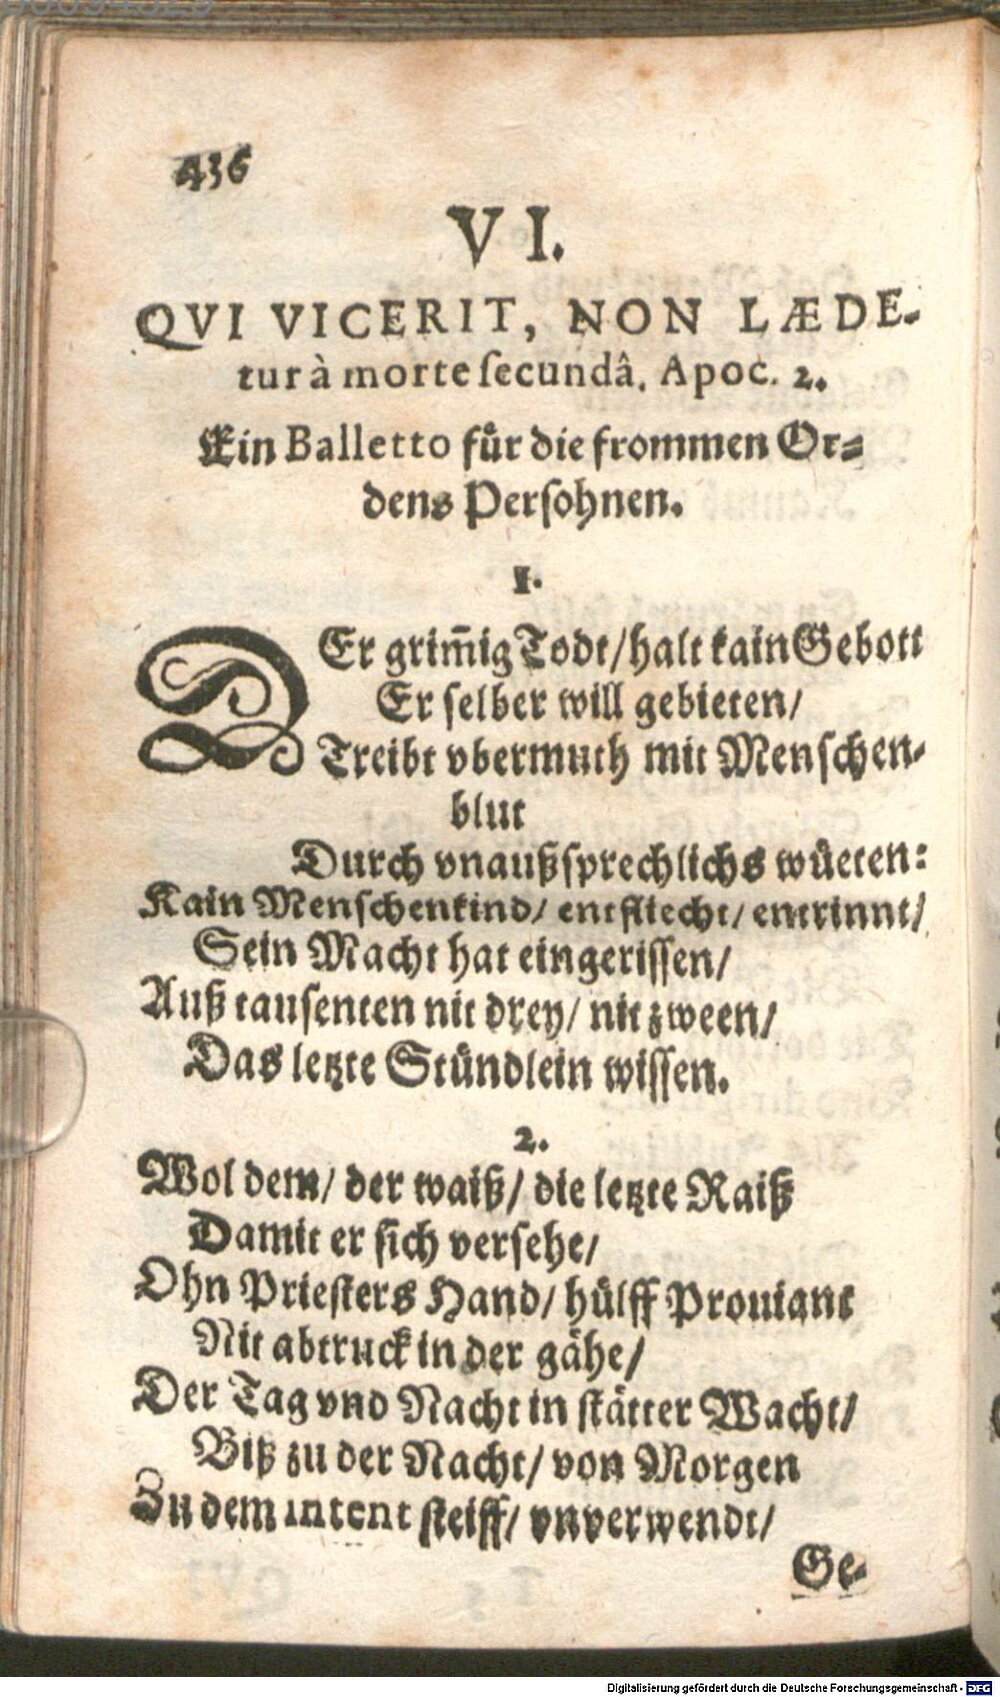 436
VI.
QVI VICERIT, NON LÆDE-
tur à morte secundâ. Apoc. 2.
Ein Balletto für die frommen Or-
dens Persohnen.
1.
DEr grim̄ig Todt/ halt kain Gebott
Er selber will gebieten/
Treibt vbermuth mit Menschen-
blut
Durch vnaußsprechlichs wüeten:
Kain Menschenkind/ entfliecht/ entrinnt/
Sein Macht hat eingerissen/
Auß tausenten nit drey/ nit zween/
Das letzte Stündlein wissen.
2.
Wol dem/ der waiß/ die letzte Raiß
Damit er sich versehe/
Ohn Priesters Hand/ hülff Prouiant
Nit abtruck in der gähe/
Der Tag vnd Nacht in stätter Wacht/
Biß zu der Nacht/ von Morgen
Zu dem intent steiff/ vnverwendt/
Ge-
Digitalisierung gefördert durch die Deutsche Forschungsgemeinschaft - DFG